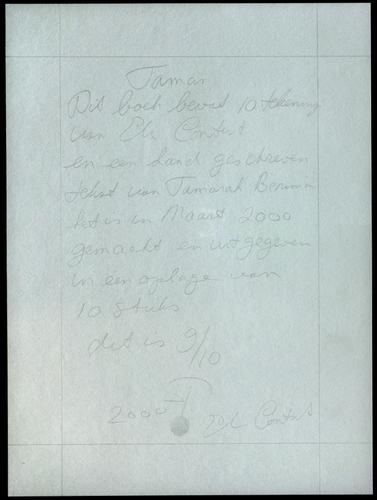 Tamar
Dit boek bevat 10 tekening
van Eli Content
en een hand geschreven
tekst van Tamarah Benima
het is in Maart 2000
gemaakt en uitgegeven
in een oplage van
10 stuks
dit is 9/10
2000 Eli Content